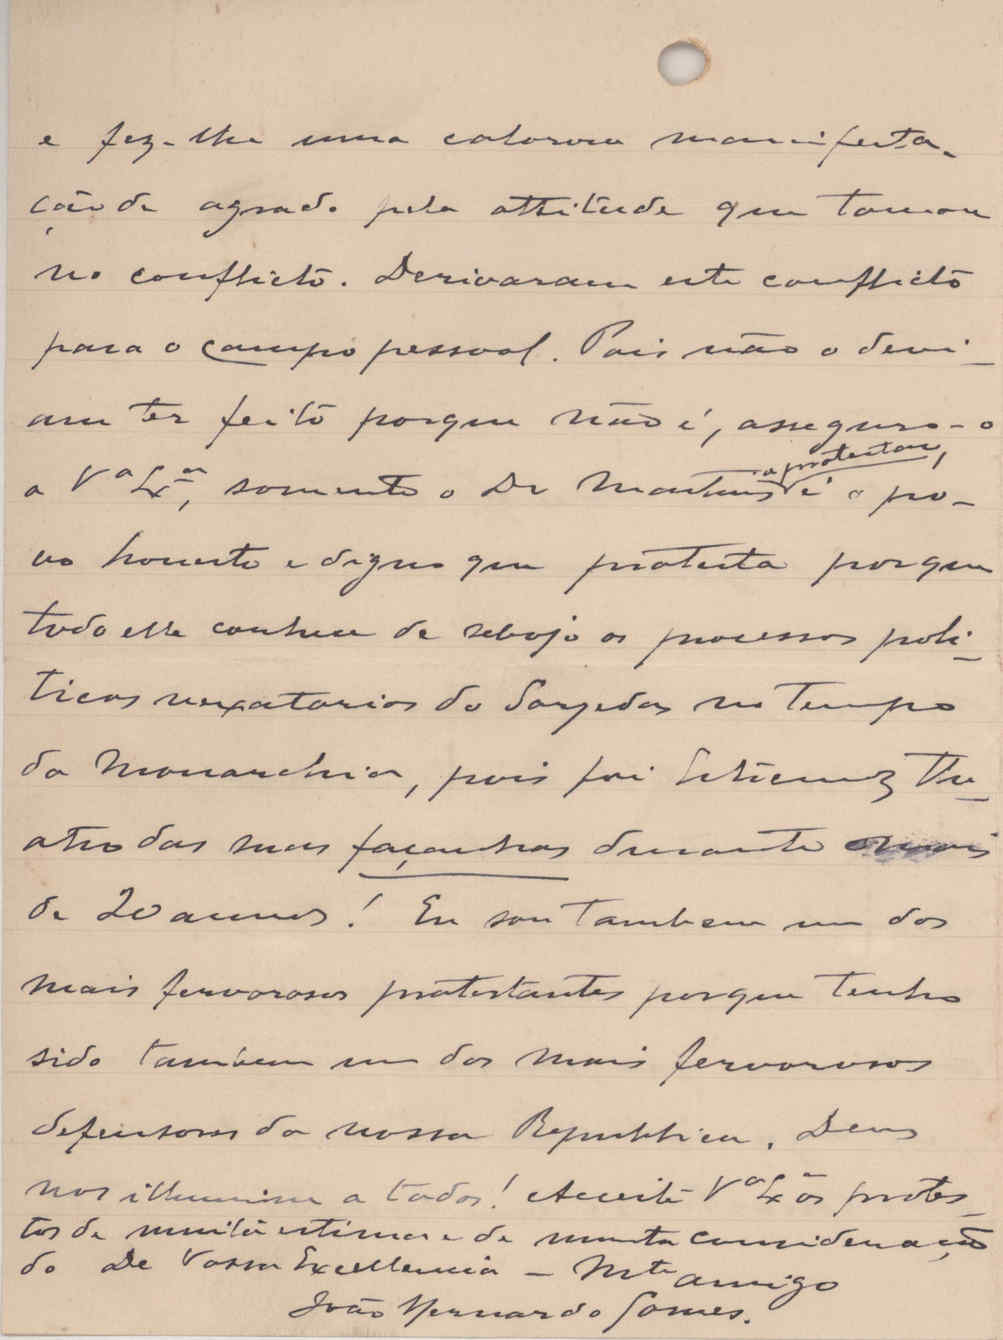 e fez-lhe uma calorosa manifesta-
ção de agrado pela attitude que tomou
no conflicto. Derivaram este conflicto
para o campo pessoal. Pois não o devi-
am ter feito porque não é, asseguro-o
a Vª Exª, somente o Dr Martins a protestar, é o po-
vo honesto e digno que protesta porque
todo elle conhece de sobejo os processos poli-
ticos vexatorios do Sargedas no tempo
da Monarchia, pois foi Extremoz The-
atro das suas façanhas durante mais
de 20 annos! Eu sou tambem um dos
mais fervorosos protestantes porque tenho
sido tambem um dos mais fervorosos
defensores da nossa Republica. Deus
nos illumine a todos! Acceite Vª Exª os protes-
tos de muita estima e de muita consideração
do De Vossa Excellencia – Mto amigo
João Bernardo Gomes.